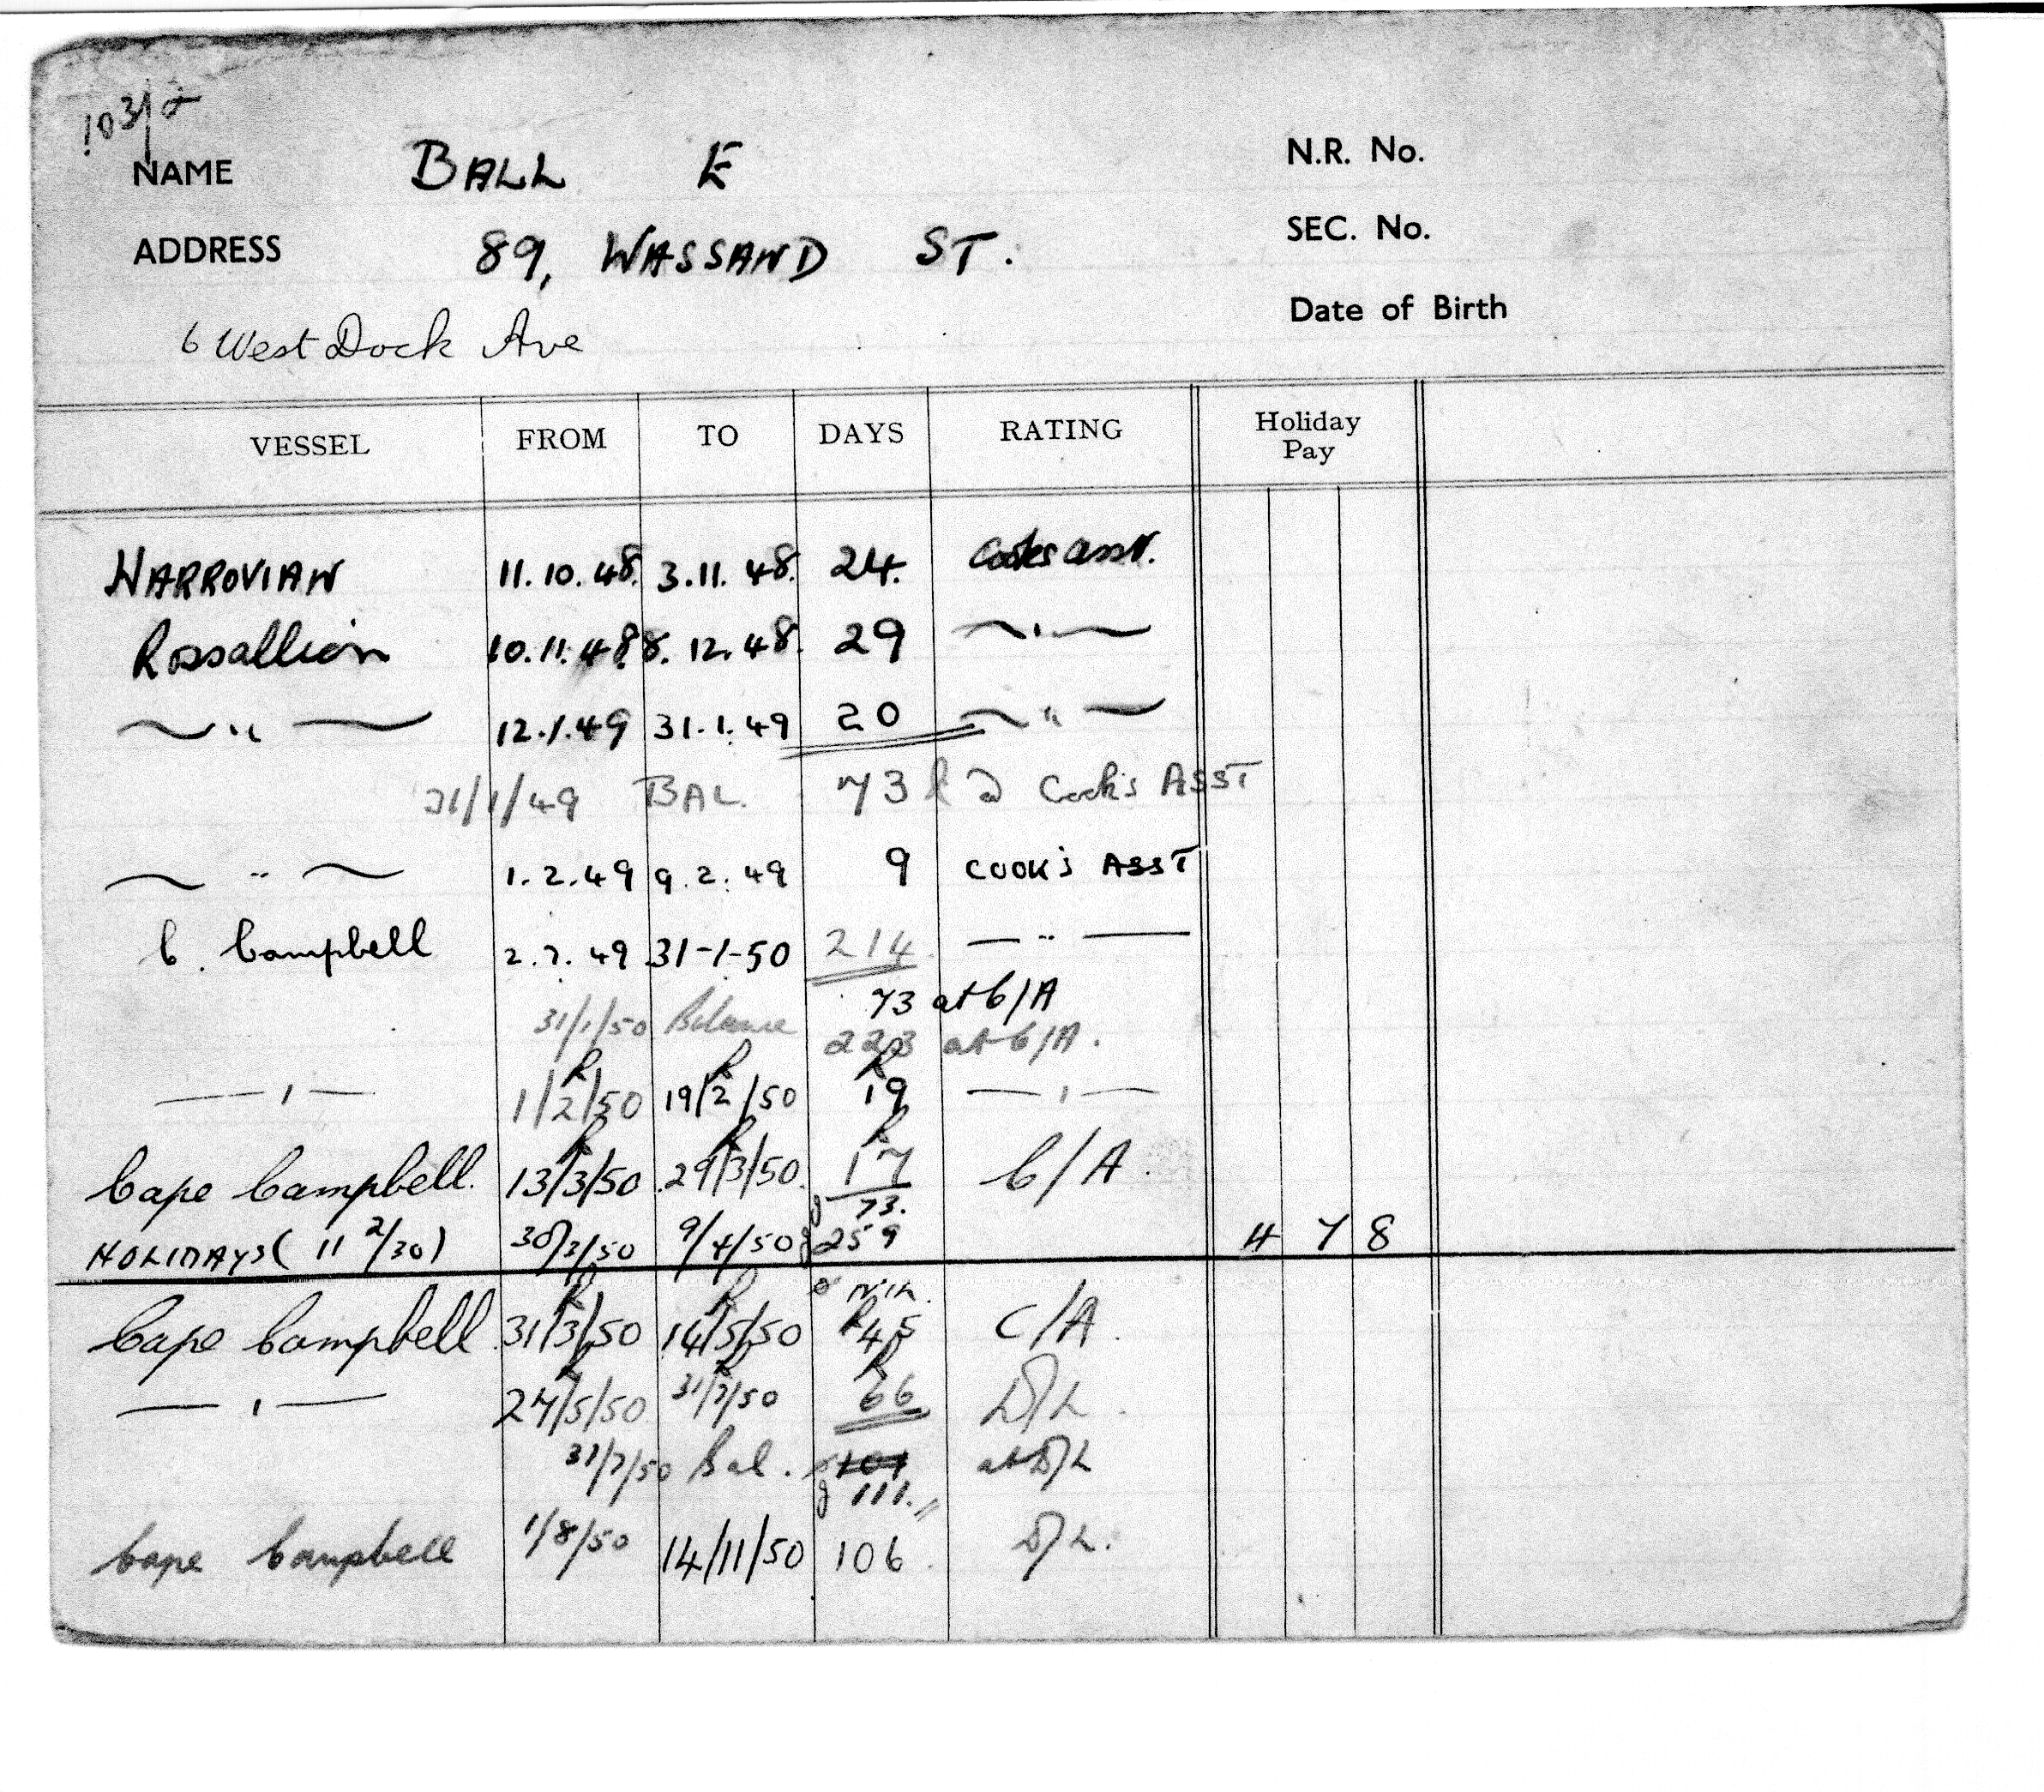 103/2
NAME BALL E N.R. No.
ADDRESS 89, WASSAND ST. SEC. No.
6 West Dock Ave Date of Birth
VESSEL FROM TO DAYS RATING Holiday Pay
HARROVIAN 11.10.48. 3.11.48. 24. Cooks asst.
Rossallian 10.11.48. 8.12.48. 29 〃
〃 12.1.49 31.1.49 20 〃
31/1/49 BAL. 73 Cook's ASST
〃 1.2.49 9.2.49 9 COOK'S ASST
C. Campbell 2.7.49 31-1-50 214 〃
73 at C/A
31/1/50 Balance 223 at C/A.
〃 1/2/50 19/2/50 19 〃
Cape Campbell. 13/3/50 29/3/50. 17 C/A.
73.
HOLIDAYS (11 2/30) 30/3/50 9/4/50 259 4 7 8
Nil.
Cape Campbell 31/3/50 14/5/50 45 C/A.
〃 27/5/50 31/7/50 66 D/L.
31/7/50 Bal. 101 at D/L
111.
Cape Campbell 1/8/50 14/11/50 106 D/L.